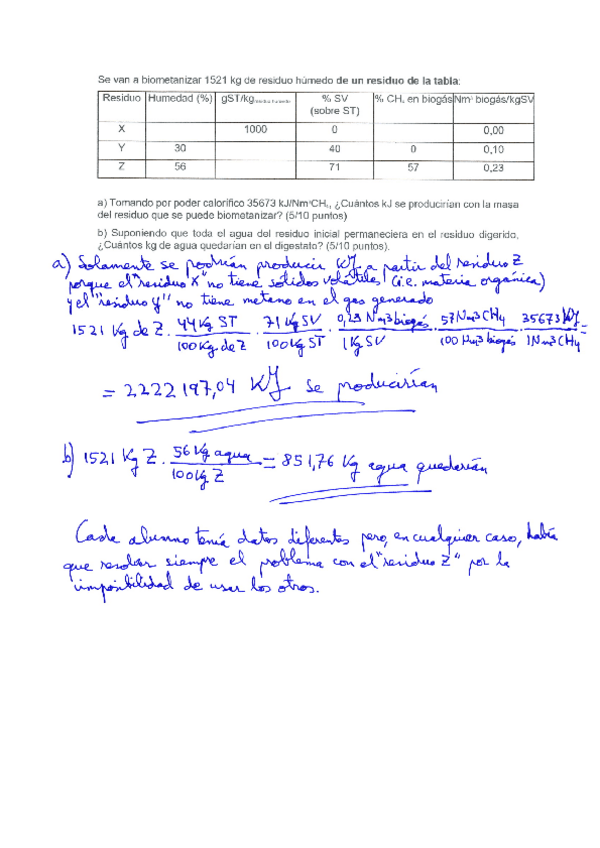 Se van a biometanizar 1521 kg de residuo húmedo de un residuo de la tabla:
Residuo Humedad (%) gST/kg residuo húmedo % SV (sobre ST) % CH₄ en biogás Nm³ biogás/kgSV
X 1000 0 0,00
Y 30 40 0 0,10
Z 56 71 57 0,23
a) Tomando por poder calorífico 35673 kJ/Nm³CH₄, ¿Cuántos kJ se producirían con la masa
del residuo que se puede biometanizar? (5/10 puntos)
b) Suponiendo que toda el agua del residuo inicial permaneciera en el residuo digerido,
¿Cuántos kg de agua quedarían en el digestato? (5/10 puntos).
a) Solamente se podrían producir kJ a partir del residuo Z
porque el "residuo X" no tiene sólidos volátiles (i.e. materia orgánica)
y el "residuo y" no tiene metano en el gas generado
1521 Kg de Z · 44 Kg ST / 100 Kg de Z · 71 Kg SV / 100 Kg ST · 0,23 Nm3 biogás / 1 Kg SV · 57 Nm3 CH4 / 100 Nm3 biogás · 35673 KJ / 1 Nm3 CH4 =
= 2222197,04 KJ se producirían
b) 1521 Kg Z · 56 Kg agua / 100 Kg Z = 851,76 Kg agua quedarían
Cada alumno tenía datos diferentes pero, en cualquier caso, había
que resolver siempre el problema con el "residuo Z" por la
imposibilidad de usar los otros.